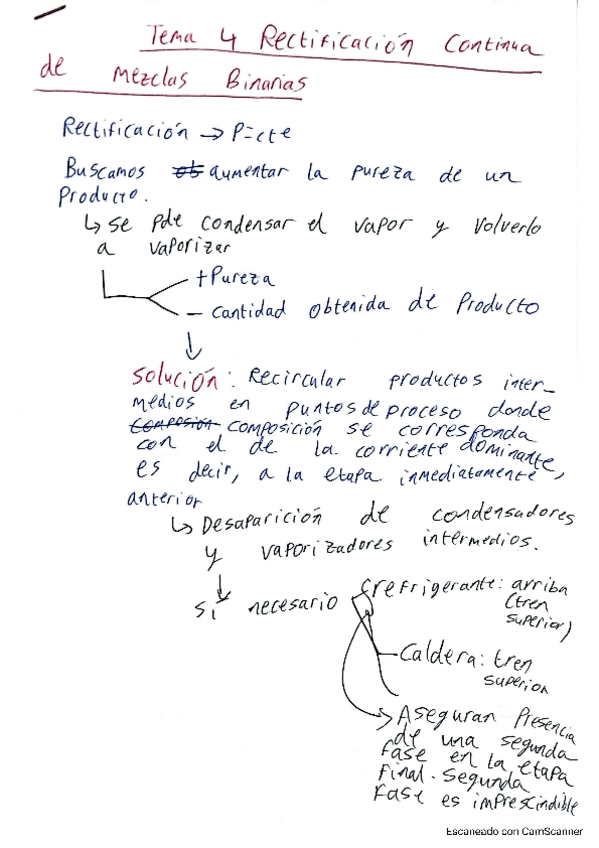 Tema 4 Rectificación Continua
de Mezclas Binarias
Rectificación → P=cte
Buscamos ob aumentar la pureza de un
Producto.
↳ se pde condensar el vapor y volverlo
a vaporizar
+ Pureza
- cantidad obtenida de Producto
↓
Solución: Recircular productos inter-
medios en puntos de proceso donde
composión composición se corresponda
con el de la corriente dominante,
es decir, a la etapa inmediatamente
anterior
↳ Desaparición de condensadores
y vaporizadores intermedios.
↓
Si necesario
refrigerante: arriba
(tren
superior)
Caldera: tren
superior
→ Aseguran Presencia
de una segunda
fase en la etapa
final. Segunda
Fase es imprescindible
Escaneado con CamScanner